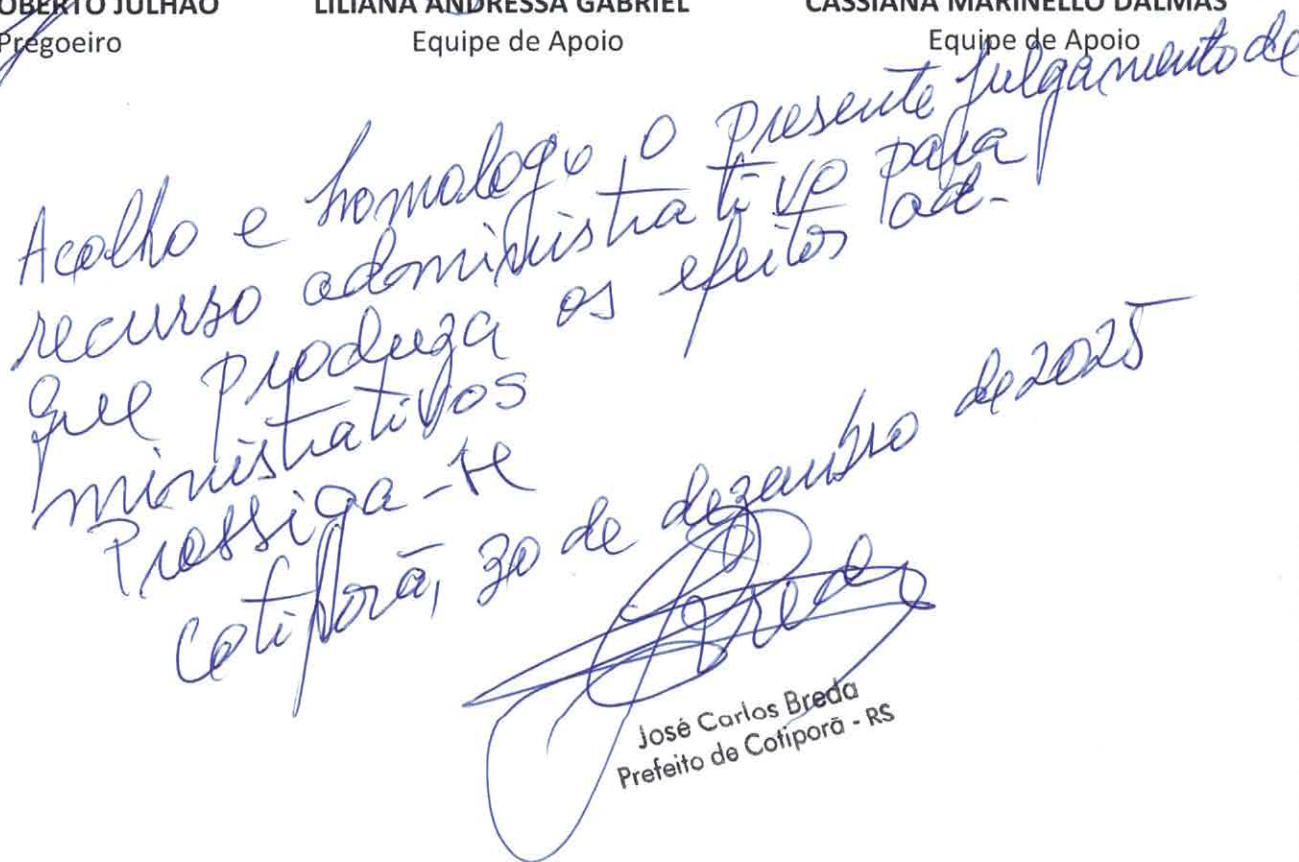 OBERTO JULHAO LILIANA ANDRESSA GABRIEL CASSIANA MARINELLO DALMAS
Pregoeiro Equipe de Apoio Equipe de Apoio
Acolho e homologo o presente julgamento de
recurso administrativo para
que produza os efeitos ad-
ministrativos
Prossiga-se
Cotiporã, 30 de dezembro de 2025
Breda
José Carlos Breda
Prefeito de Cotiporã - RS